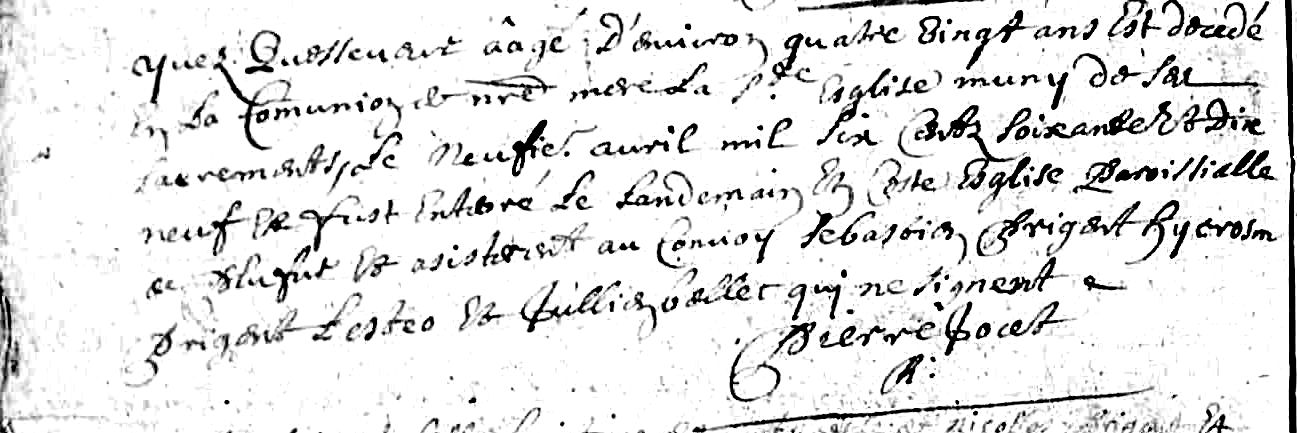 yvez Quesseveur âagé D'environ quatre vingt ans Est decedé
En La Comunion de nre mere La Ste Esglise muny de ses
sacrements, Le Neufie. avril mil six Centz soixante Et Dix
neuf Et Fust Enterré Le Landemain En Ceste Esglise Paroissialle
de Et asisterent au Convoy sebastien Prigent hyerosm
Prigent Et Jullien bellec qui ne signent
Pierre Jocet
R.